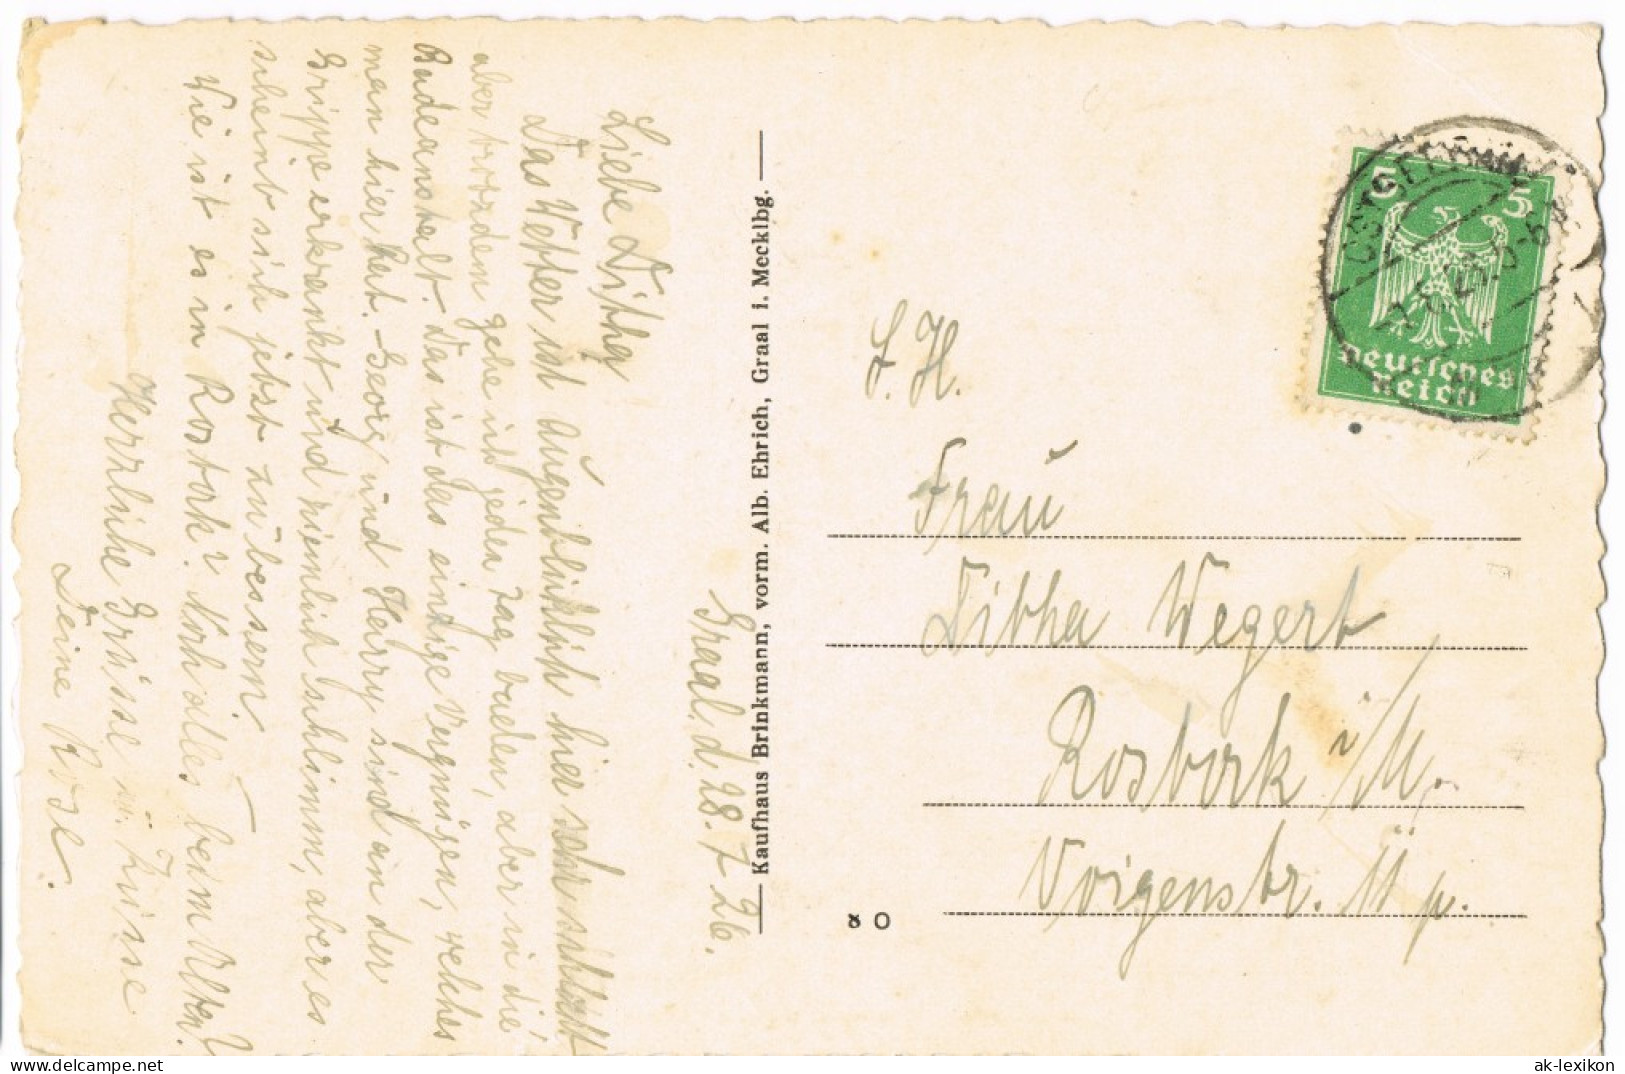 Graal. d. 28. 7. 26.
Liebe
Das Wetter ist augenblicklich hier sehr schlecht
aber trotzdem gehe ich jeden Tag baden, aber in die
Badeanstalt. Das ist das einzige Vergnügen, welches
man hier hat. - Georg und Herry sind an der
Grippe erkrankt und ziemlich schlimm, aber es
scheint sich jetzt zu bessern.
Wie ist es in Rostock? Noch alles beim Alten?
Herzliche Grüsse u. Küsse
Deine Rose.
Kaufhaus Brinkmann, vorm. Alb. Ehrich, Graal i. Mecklbg.
5 5
Deutsches
Reich
Frau
Wegert
Rostock i/M.
Voigenstr. 11 p.
8 O
ak-lexikon